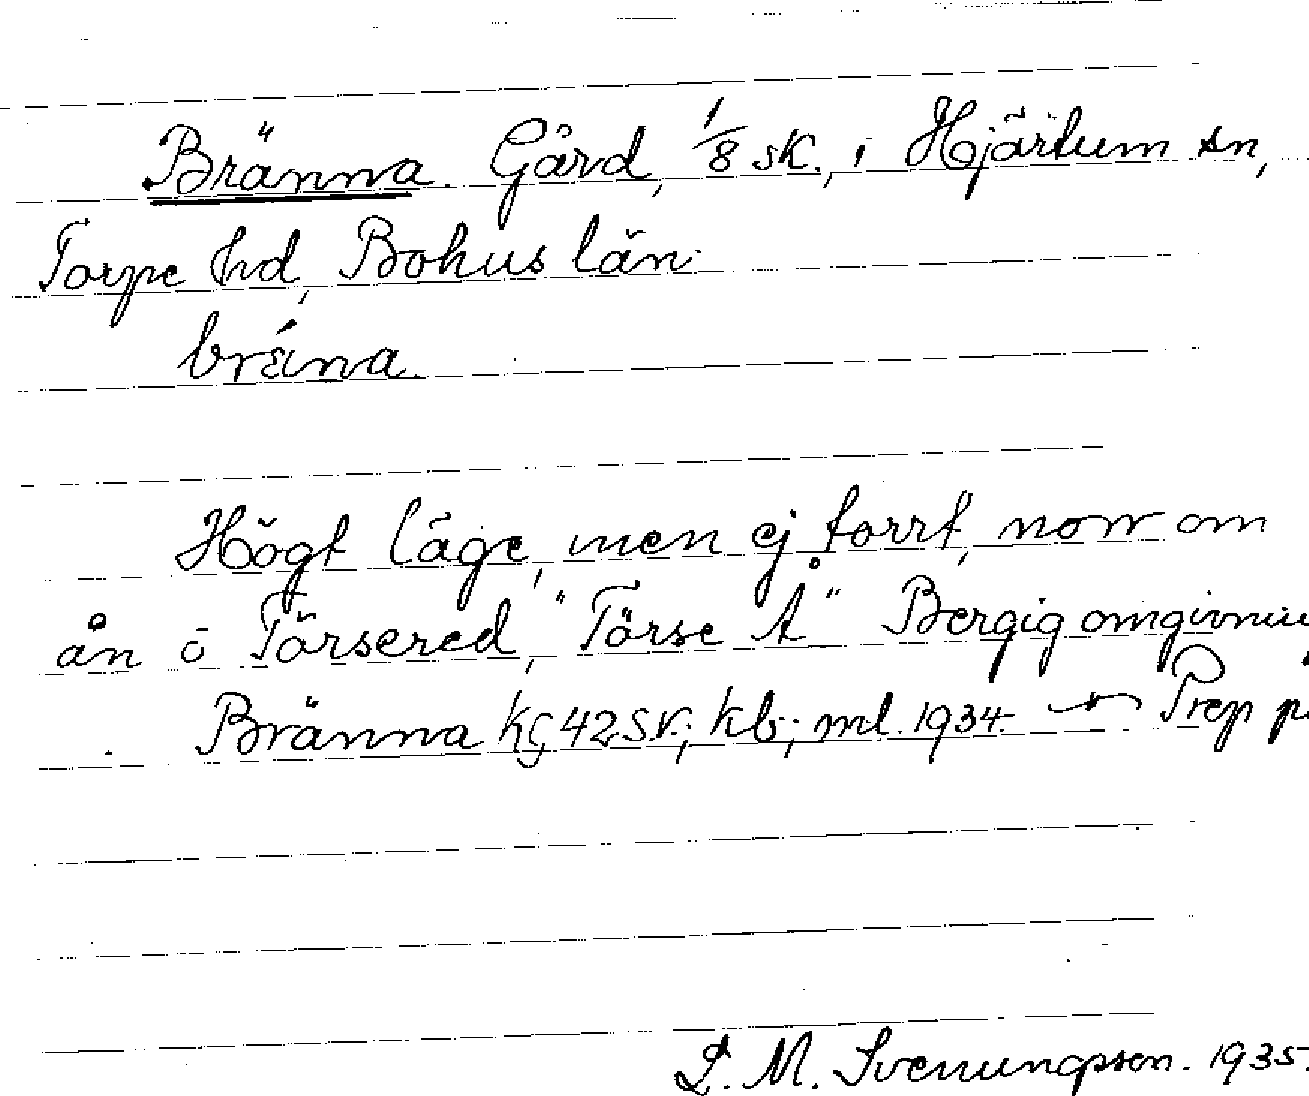 Bränna. Gård, 1/8 sk., i Hjärtum sn,
Torpe hd, Bohus län.
bräna.
Högt läge, men ej torrt, norr om
ån ö Törsered, "Törse Å" Bergig omgivnin
Bränna KG 42 SV.; kb.; ml. 1934. Prep på
L. M. Svenungsson. 1935.